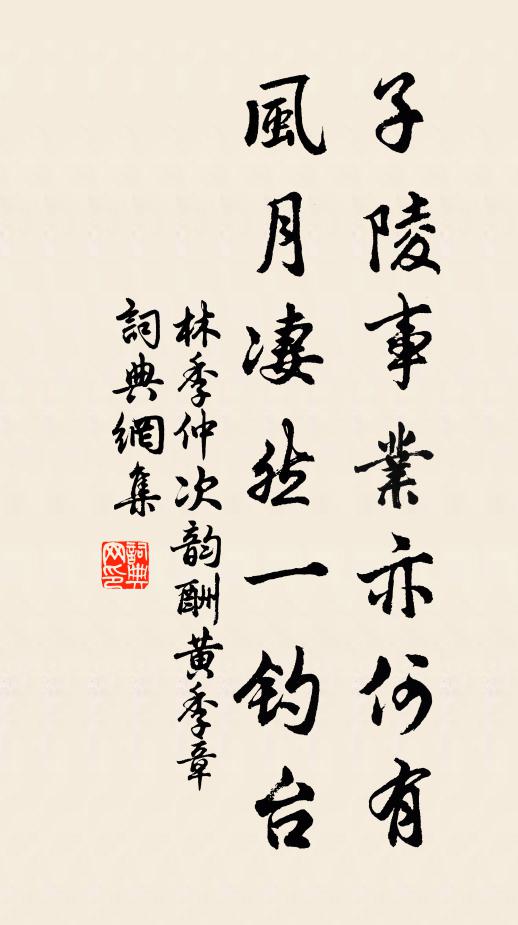 子陵事業亦何有
風月凄然一釣台
林季仲次韵酬黄季章
詞典網集
詞典网印